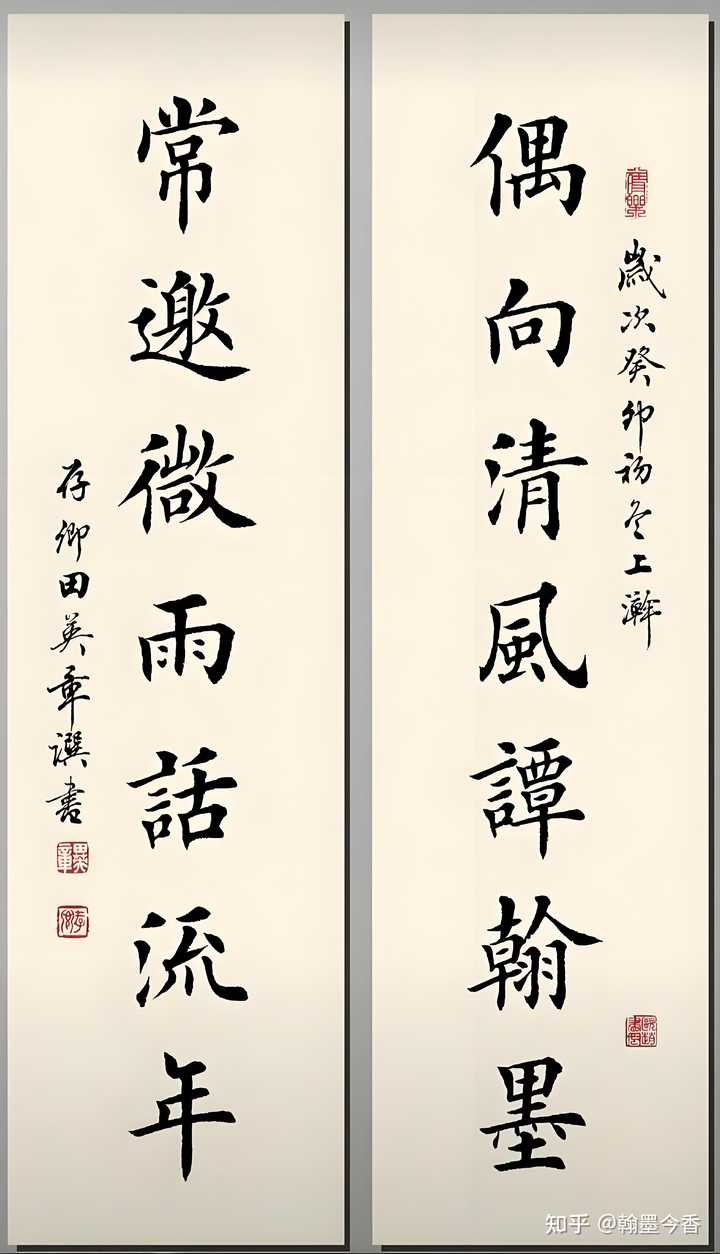 歲次癸卯初冬上澣
偶向清風譚翰墨
常邀微雨話流年
存卿田英章譔書
田英章
存卿
知乎 @翰墨今香